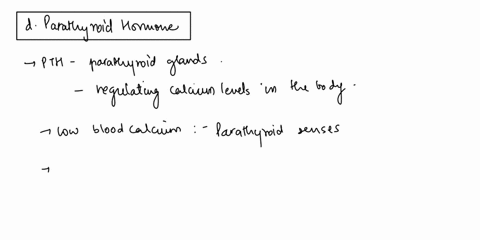 d. Parathyroid Hormone
→ PTH - parathyroid glands.
- regulating calcium levels in the body.
→ low blood calcium :- Parathyroid senses
→